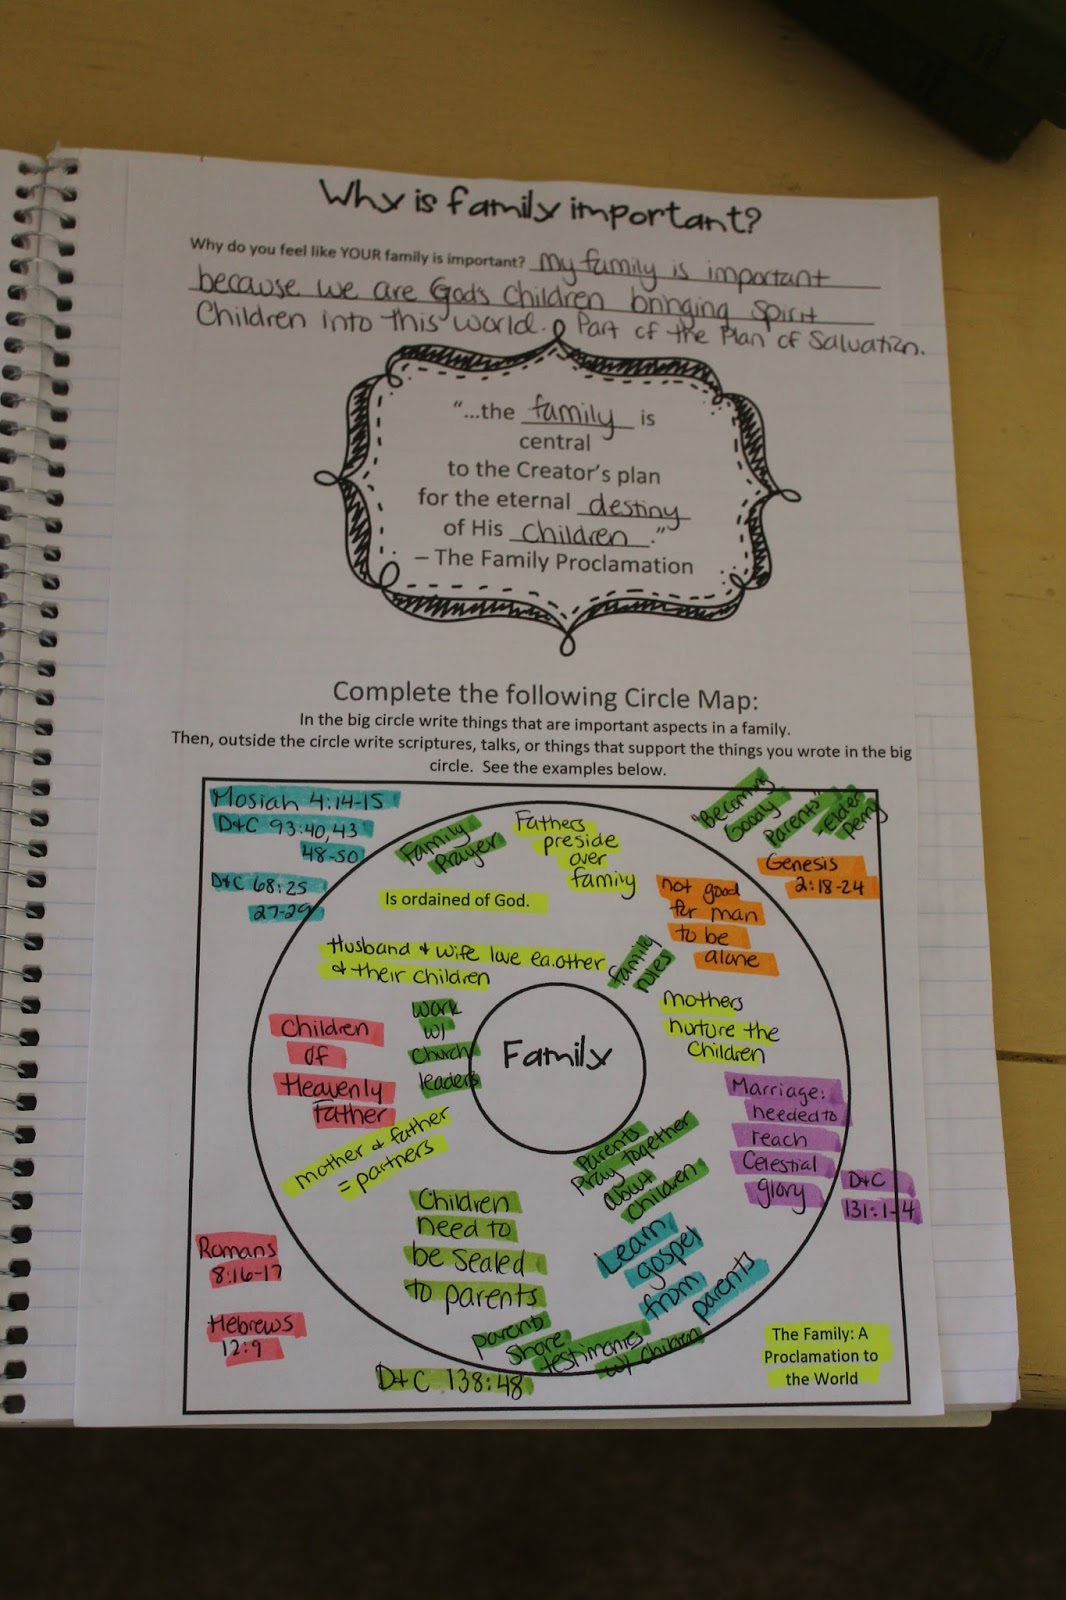 Why is family important?
Why do you feel like YOUR family is important? My family is important
because we are God's Children bringing spirit
Children into this world. Part of the Plan of Salvation.
“...the family is
central
to the Creator’s plan
for the eternal destiny
of His Children.”
– The Family Proclamation
Complete the following Circle Map:
In the big circle write things that are important aspects in a family.
Then, outside the circle write scriptures, talks, or things that support the things you wrote in the big
circle. See the examples below.
Mosiah 4:14-15
D+C 93:40,43
48-50
D+C 68:25
27-29
"Becoming
Goodly
Parents"
-Elder
Perry
Genesis
2:18-24
Family
Prayer
Fathers
preside
over
family
Is ordained of God.
not good
for man
to be
alone
Husband + wife love ea.other
+ their children
family
rules
mothers
nurture the
children
work
w/
church
leaders
Family
Children
of
Heavenly
Father
mother + father
= partners
Marriage:
needed to
reach
Celestial
glory
D+C
131:1-4
Parents
Pray together
about
children
Children
need to
be sealed
to parents
Learn
gospel
from
parents
Romans
8:16-17
Hebrews
12:9
parents
share
testimonies
w/ children
D+C 138:48
The Family: A
Proclamation to
the World